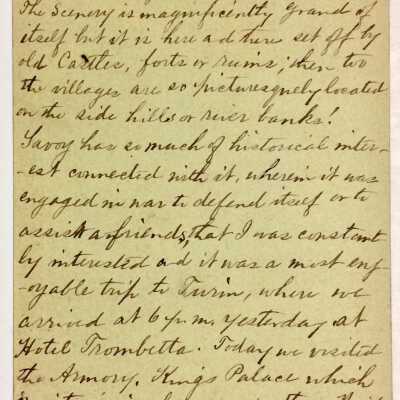 The Scenery is magnificently grand of
itself but it is here a d there set off by
old Castles, forts or ruins; then too
the villages are so picturesquely located
on the side hills or river banks!
Savoy has so much of historical inter-
-est connected with it, wherein it was
engaged in war to defend itself or to
assist a friends, that I was constant
ly interested a d it was a most enj-
-oyable trip to Turin, where we
arrived at 6 p.m. yesterday at
Hotel Trombetta. Today we visited
the Armory, Kings Palace which